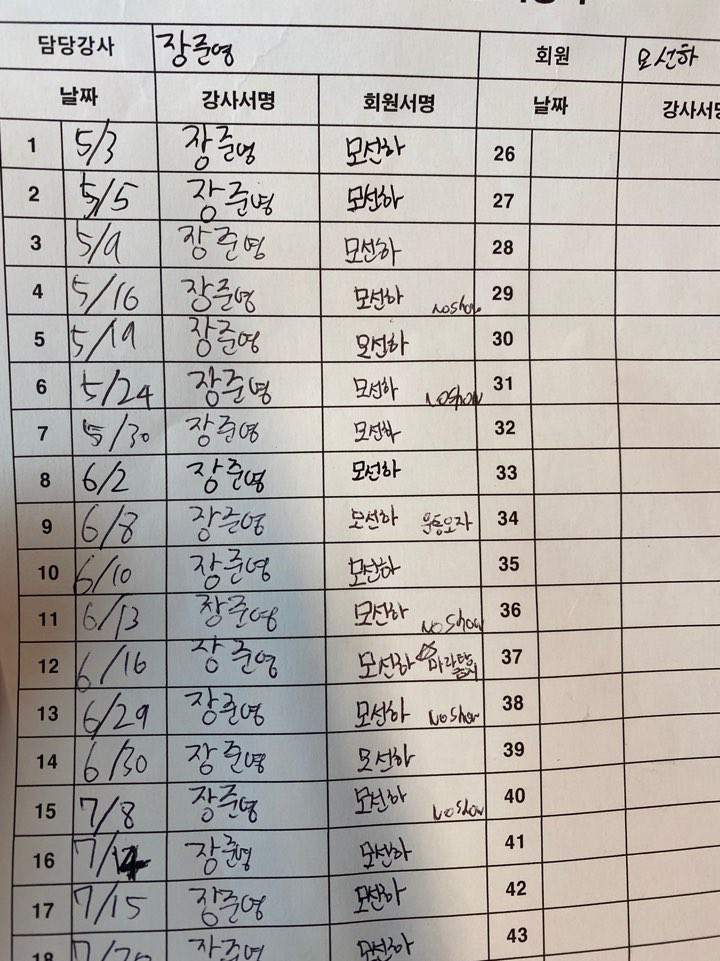 담당강사 장준영 회원 모선하
날짜 강사서명 회원서명 날짜 강사서명
1 5/3 장준영 모선하 26
2 5/5 장준영 모선하 27
3 5/9 장준영 모선하 28
4 5/16 장준영 모선하 noshow 29
5 5/19 장준영 모선하 30
6 5/24 장준영 모선하 noshow 31
7 5/30 장준영 모선하 32
8 6/2 장준영 모선하 33
9 6/8 장준영 모선하 운동오자 34
10 6/10 장준영 모선하 35
11 6/13 장준영 모선하 No Show 36
12 6/16 장준영 모선하 마라탕 금지 37
13 6/29 장준영 모선하 No Show 38
14 6/30 장준영 모선하 39
15 7/8 장준영 모선하 No Show 40
16 장준영 모선하 41
17 7/15 장준영 모선하 42
18 장준영 모선하 43